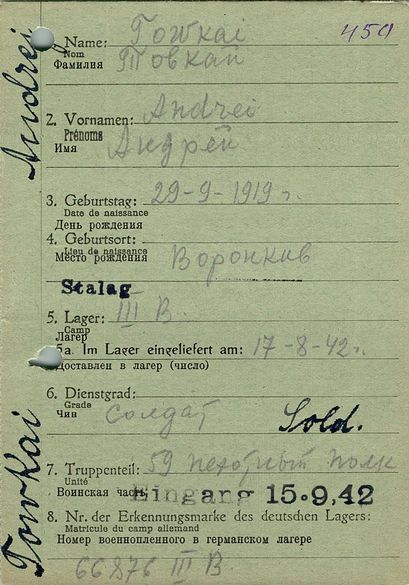 Andrej
Towkai
1. Name: Towkai
Nom
Фамилия Товкай
459
2. Vornamen: Andrei
Prénoms
Имя Андрей
3. Geburtstag: 29-9-1919 г.
Date de naissance
День рождения
4. Geburtsort:
Lieu de naissance
Место рождения Воронкив
Stalag
5. Lager: III B.
Camp
Лагерь
5a. Im Lager eingeliefert am: 17-8-42 г.
Доставлен в лагерь (число)
6. Dienstgrad:
Grade
Чин солдат Sold.
7. Truppenteil: 59 пехотный полк
Unité
Воинская часть Eingang 15.9.42
8. Nr. der Erkennungsmarke des deutschen Lagers:
Matricule du camp allemand
Номер военнопленного в германском лагере
66876 III B